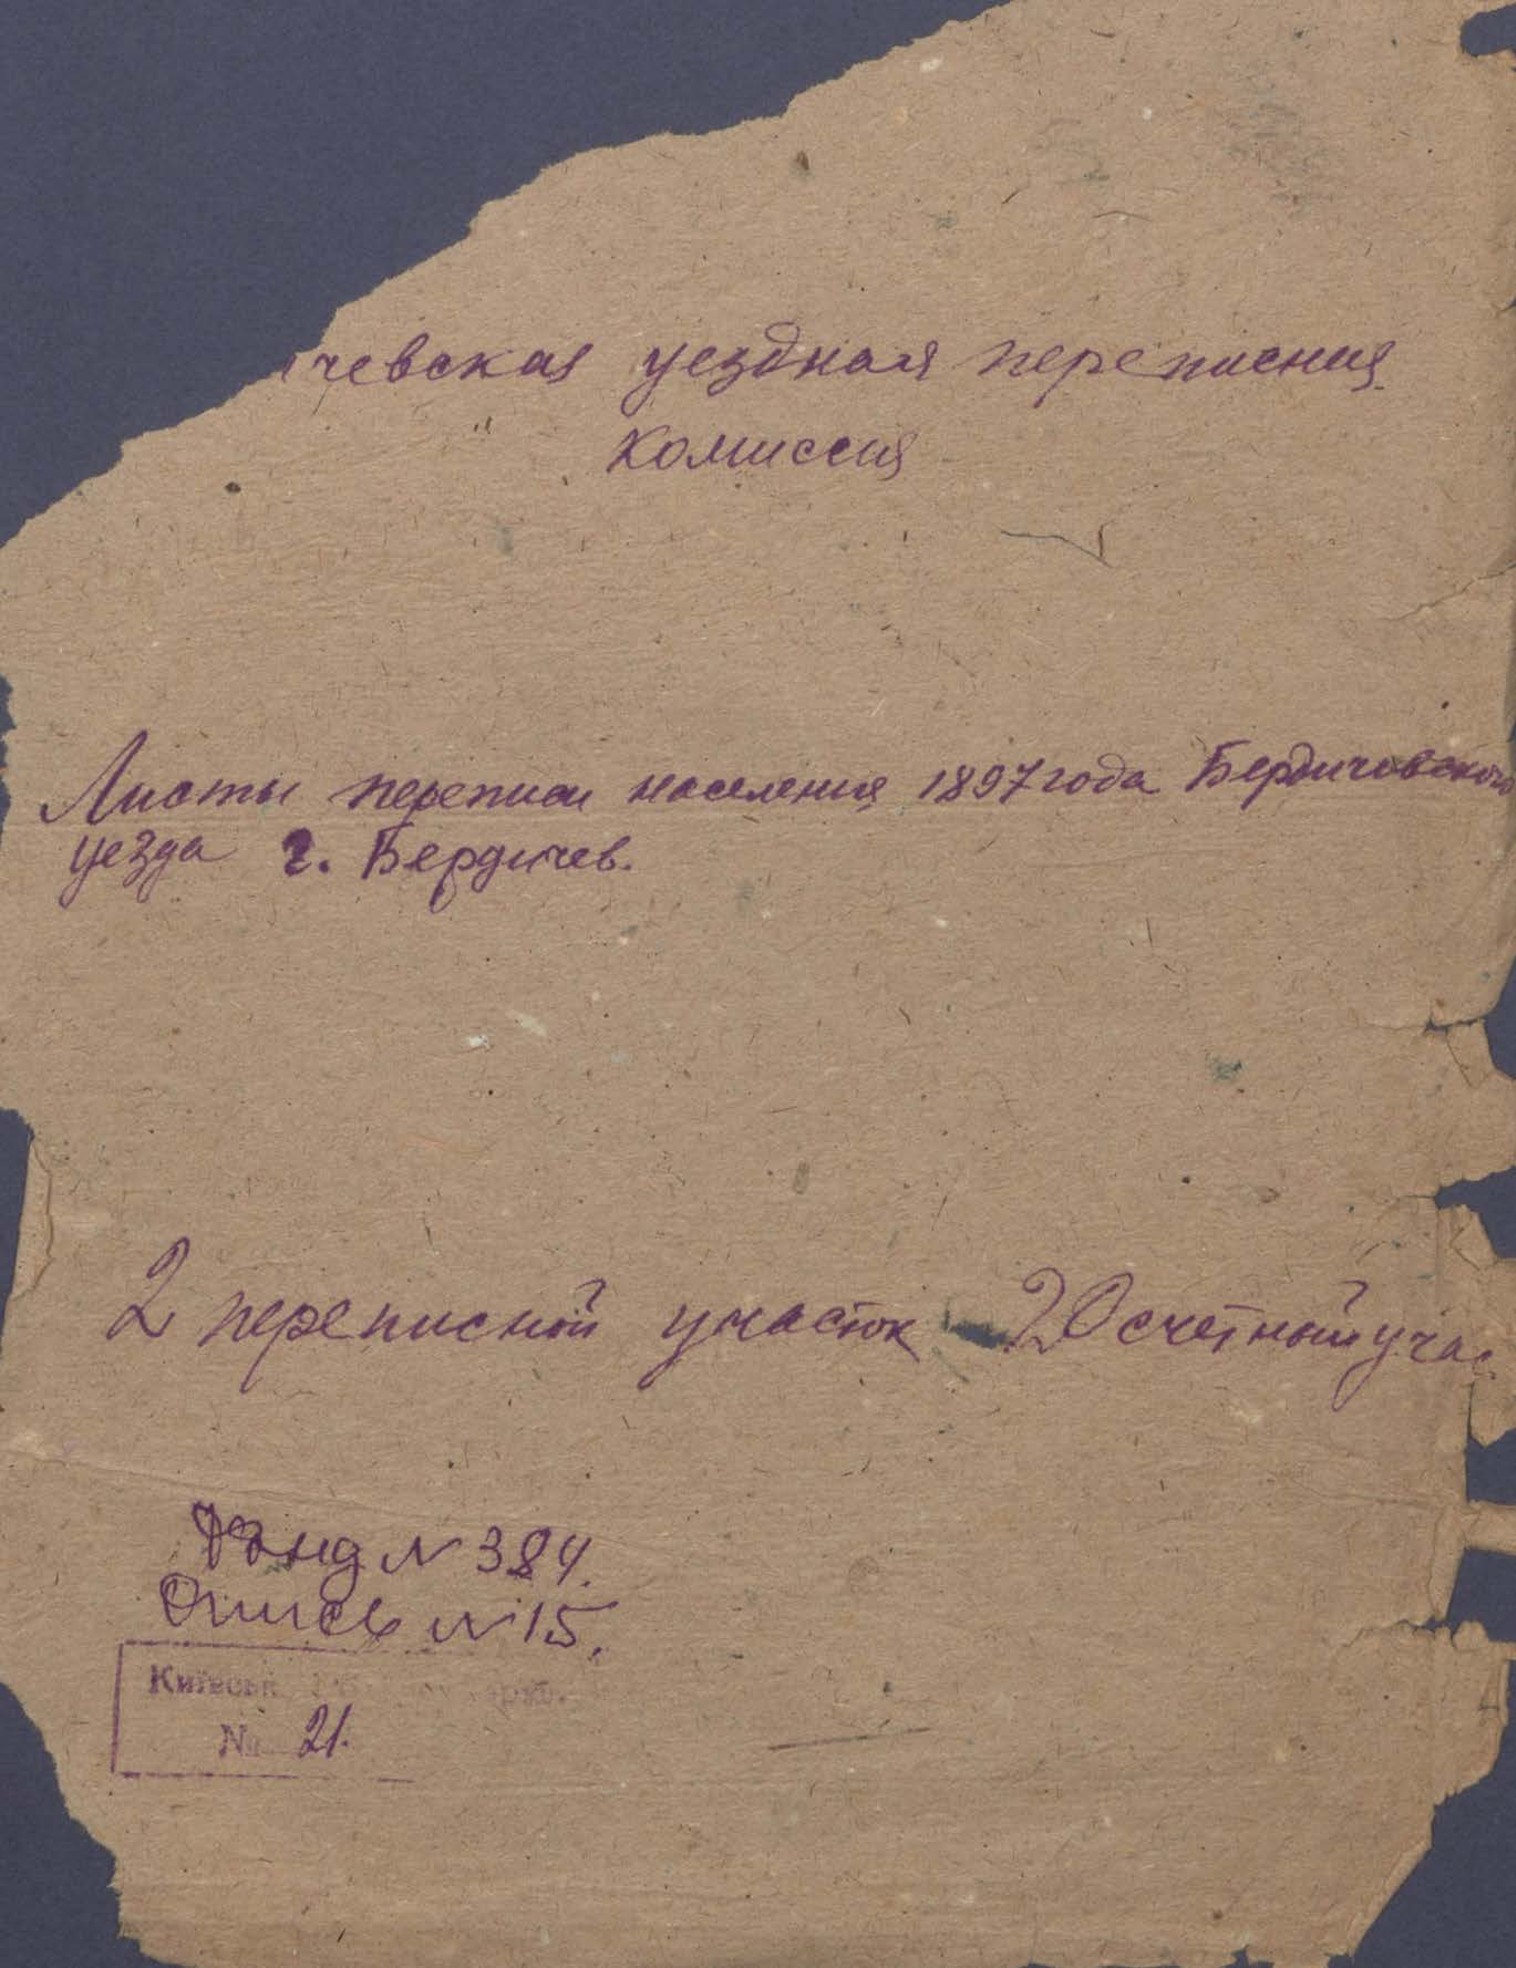 ичевская уездная переписная
комиссия
Листы переписи населения 1897 года Бердичевского
уезда г. Бердичев.
2 переписной участок 20 счетный учас
Фонд N 384.
Опись N 15.
Київськ
№ 21.